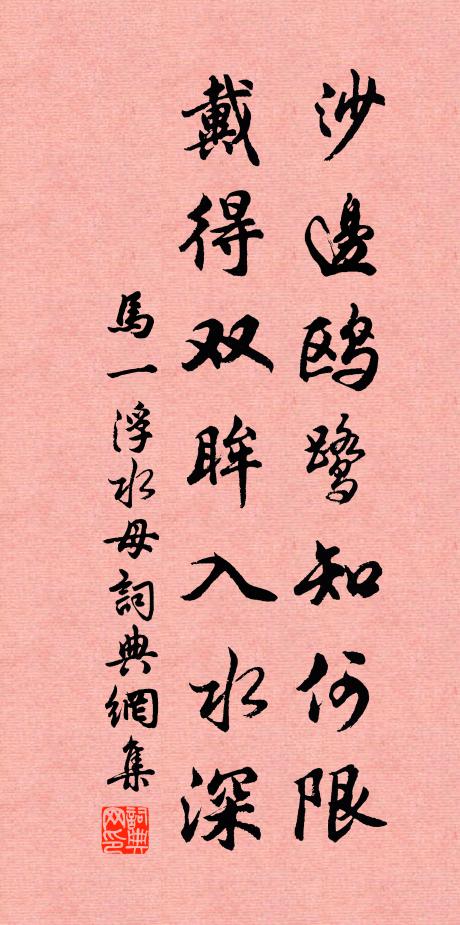 沙邊鷗鷺知何限
戴得双眸入水深
馬一浮水母詞典網集
詞典网印